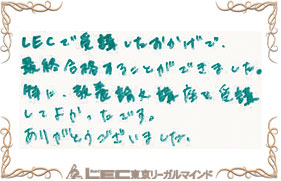 LECで受講したおかげで、
最終合格することができました。
特に、教養論文講座を受講
してよかったです。
ありがとうございました。
LEC東京リーガルマインド